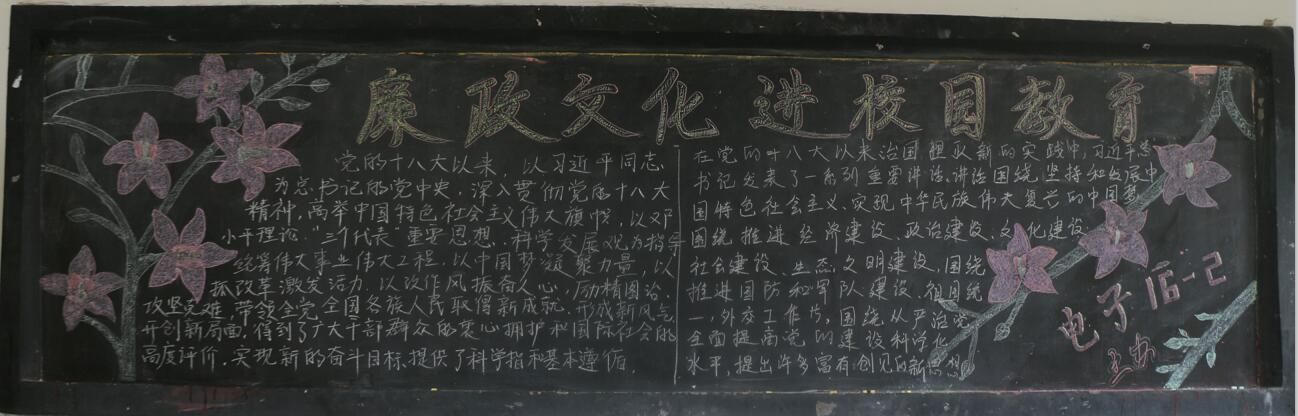 廉政文化进校园教育
党的十八大以来，以习近平同志
为总书记的党中央，深入贯彻党的十八大
精神，高举中国特色社会主义伟大旗帜，以邓
小平理论."三个代表"重要思想.科学发展观为指导
统筹伟大事业伟大工程.以中国梦凝聚力量，以
抓改革激发活力.以改作风振奋人心，励精图治
攻坚克难，带领全党全国各族人民取得新成就.形成新风气
开创新局面.得到了广大干部群众的衷心拥护和国际社会的
高度评价.实现新的奋斗目标.提供了科学指和基本遵循.
在党的十八大以来治国理政新的实践中，习近平总
书记发表了一系列重要讲话.讲话围绕坚持和发展中
国特色社会主义.实现中华民族伟大复兴的中国梦
围绕推进经济建设、政治建设、文化建设
社会建设、生态文明建设，围绕
推进国防和军队建设、祖国统
一，外交工作片，围绕从严治党
全面提高党的建设科学化
水平，提出许多富有创见的新思想
电子16-2
主办